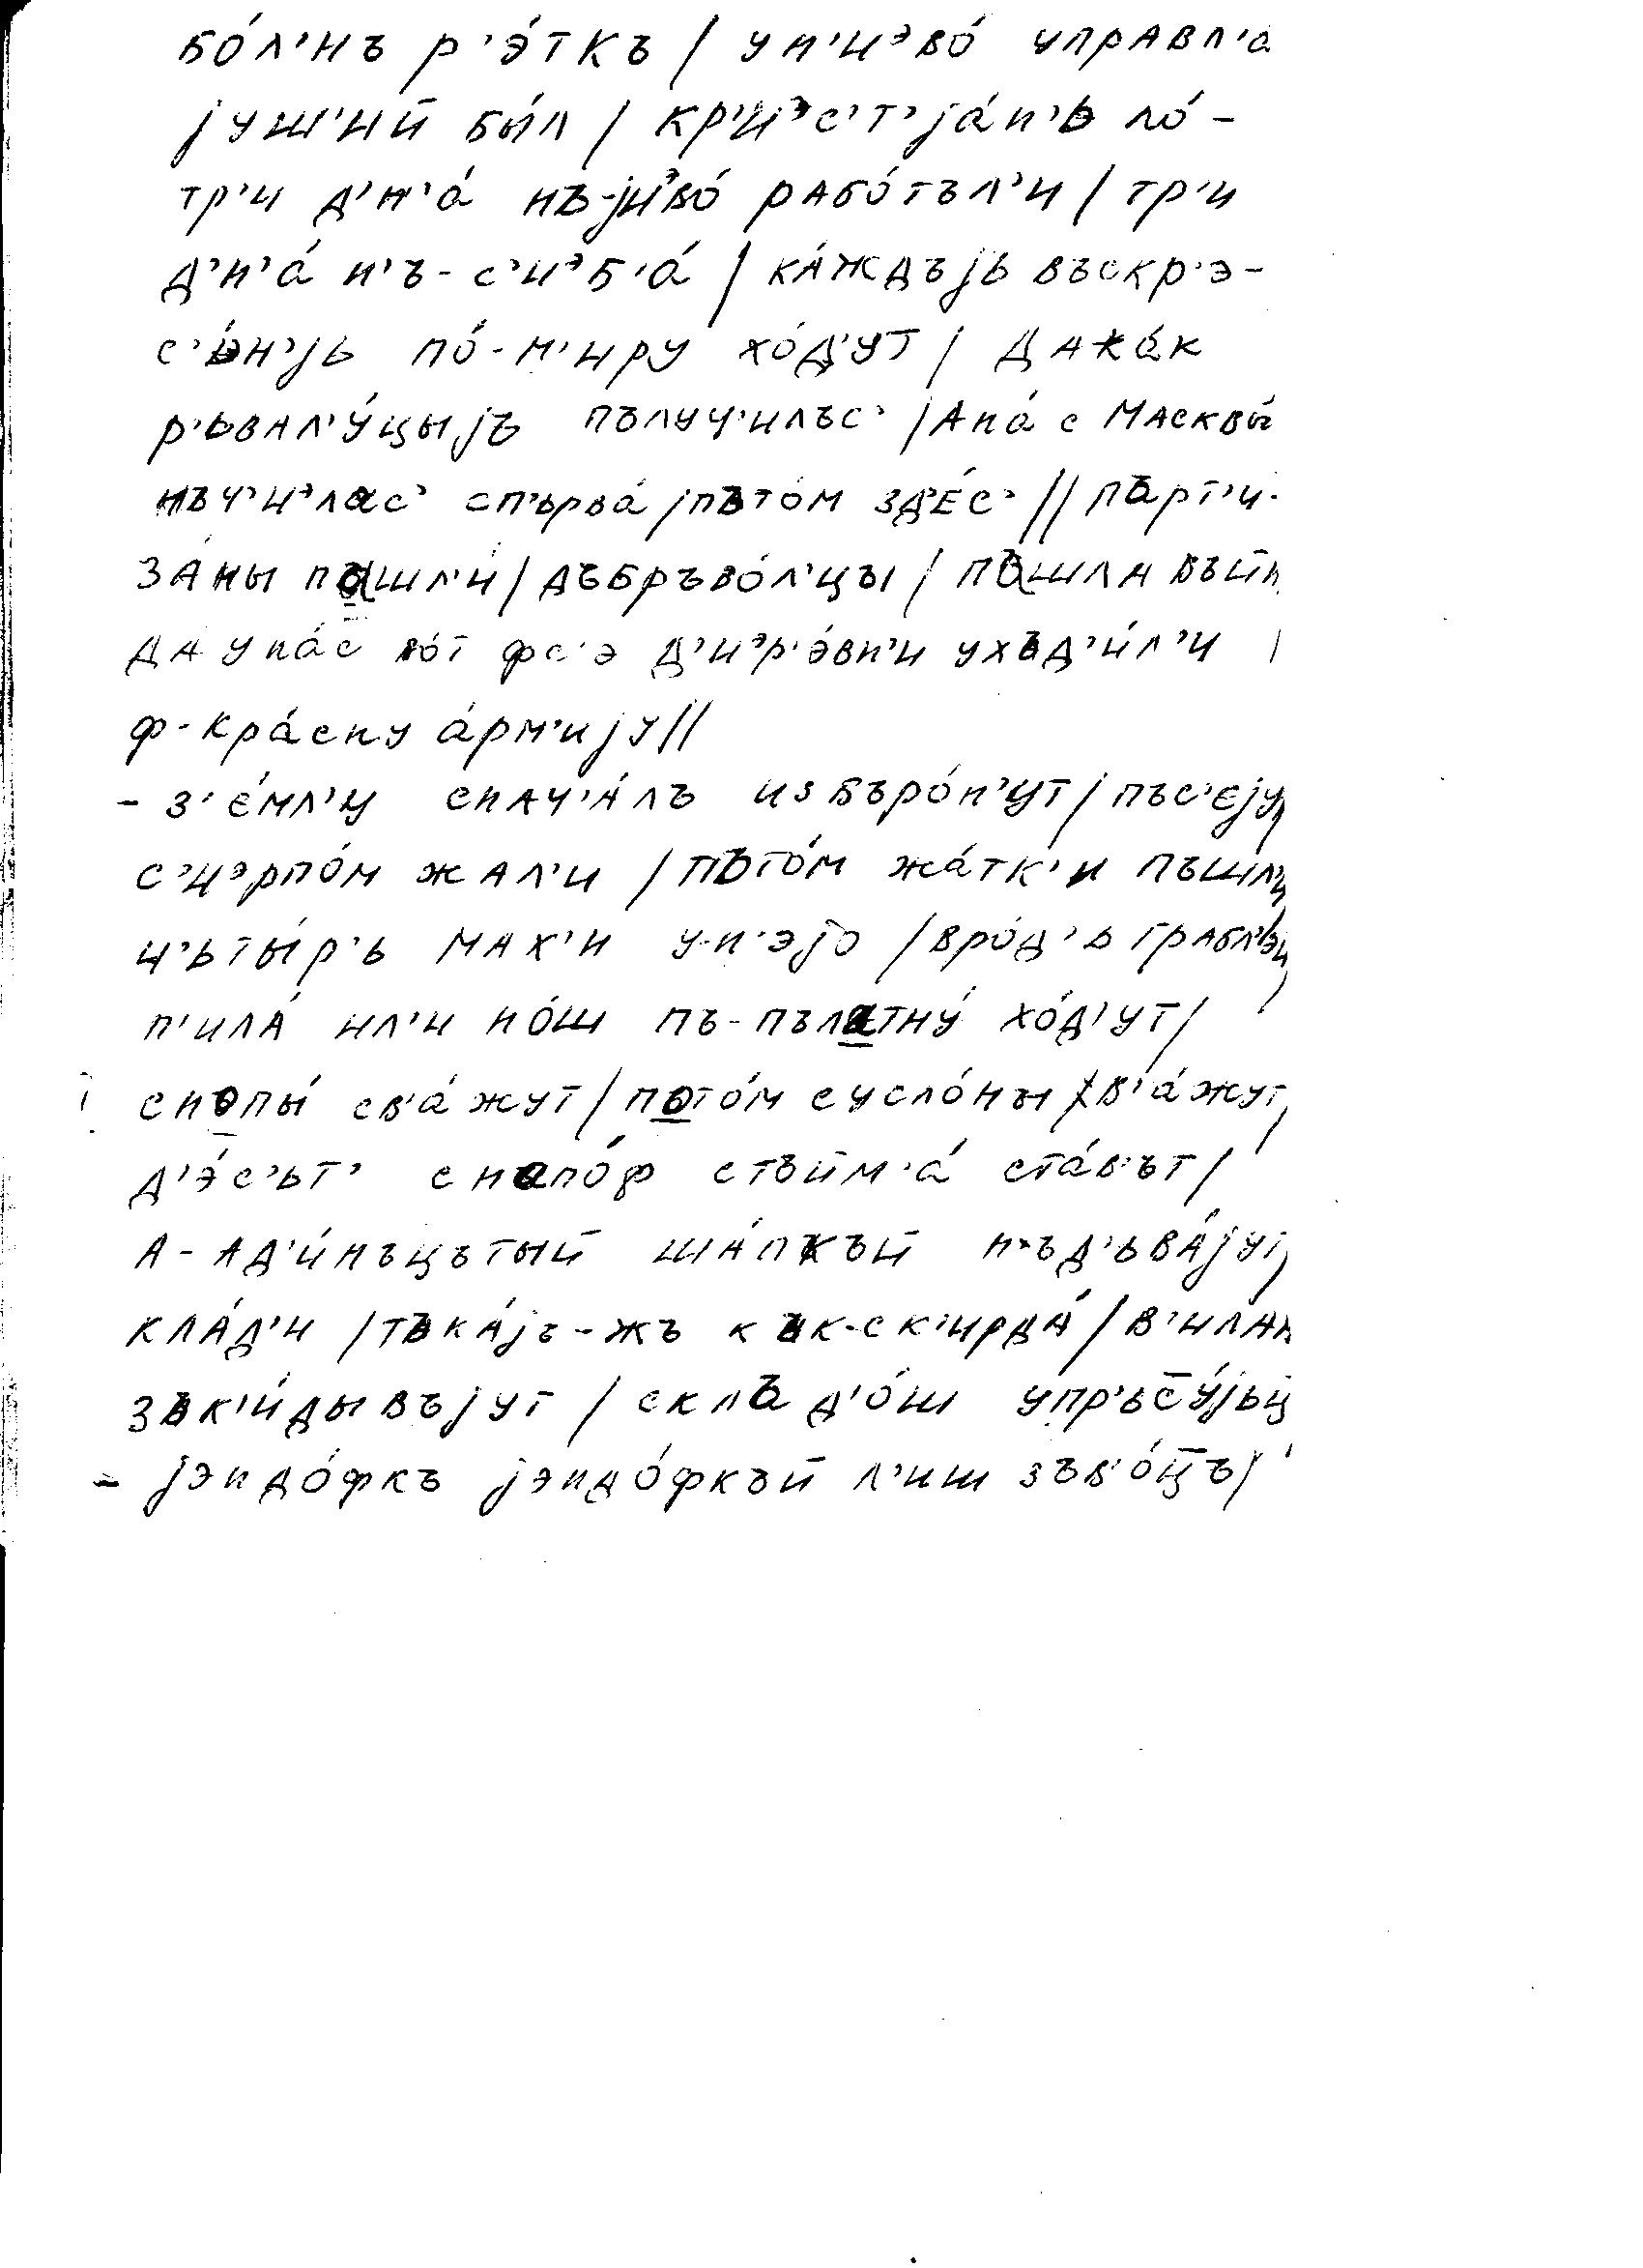 бо́л'нъ р'э́ткъ / ун'иэво́ управл'а
јуш'ий бы́л / кр'иэс'т'јáн'ь по́-
тр'и д'н'á нъ-јиэво́ рабо́тъл'и / тр'и
д'н'á н'ъ-с'иэб'á / кáждъјь въскр'э-
с'э́н'јь по́-м'иру хо́д'ут / дакáк
р'ьвал'у́цыјъ пълуч'илъс' / анá с Масквы́
нъч'иэлас' спървá јпъто́м зд'е́с' // пърт'и-
зáны пашл'и́ / дъбръво́л'цы / пашла въйн
да унáс во́т фс'э д'иэр'э́вн'и ухъд'и́л'и /
ф-крáсну áрм'ију //
- з'е́мл'у снач'áлъ избъро́н'ут / пъс'еју /
с'иэрпо́м жал'и / пъто́м жáтк'и пъшл'и
ч'ьты́р'ь мах'и у-н'эјо / вро́д'ь грабл'эи
п'илá ил'и но́ш пъ-пълатну́ хо́д'ут /
снопы́ св'áжут / пото́м сусло́ны в'áжут /
д'э́с'ьт' снапо́ф стъйм'á стáв'ът /
а-ад'и́нъцътый шáпкъй нъд'ьвáјут /
клáд'и / тъкáјъ-жъ кък-ск'ирдá / в'илам
зък'и́дывъјут / скла д'о́ш упр'ьсу́јьц
- јэндо́фкъ јэндо́фкъй л'иш зъв'о́цъ /